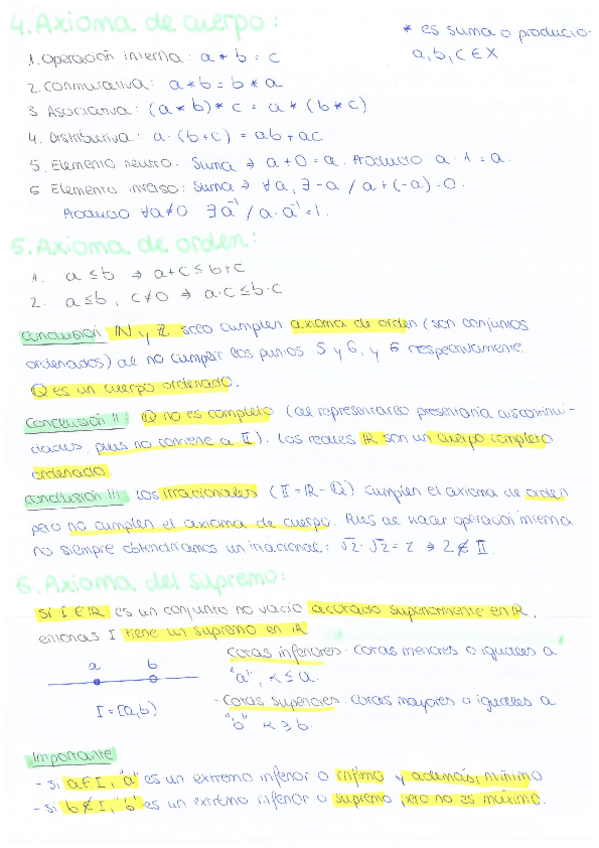 4. Axioma de cuerpo:
* es suma o producto.
a, b, c ∈ X
1. Operación interna: a * b = c
2. Conmutativa: a * b = b * a
3. Asociativa: (a * b) * c = a * (b * c)
4. Distributiva: a · (b+c) = ab + ac
5. Elemento neutro. Suma ⇒ a + 0 = a. Producto a · 1 = a.
6 Elemento inverso: Suma ⇒ ∀a, ∃ -a / a + (-a) = 0.
Producto ∀a≠0 ∃ a⁻¹ / a · a⁻¹ = 1.
5. Axioma de orden:
1. a ≤ b ⇒ a + c ≤ b + c
2. a ≤ b, c≠0 ⇒ a·c ≤ b·c
Conclusión ℕ y ℤ solo cumplen axioma de orden (son conjuntos
ordenados) al no cumplir los puntos 5 y 6, y 6 respectivamente.
ℚ es un cuerpo ordenado.
Conclusión II: ℚ no es completo (al representarlo presentaría discontinui-
dades, pues no contiene a 𝕀). Los reales ℝ son un cuerpo completo
ordenado
Conclusión III: Los irracionales (𝕀 = ℝ - ℚ) cumplen el axioma de orden
pero no cumplen el axioma de cuerpo. Pues al hacer operación interna
no siempre obtendríamos un irracional: √2 · √2 = 2 ⇒ 2 ∉ 𝕀.
6. Axioma del supremo:
Si I ∈ ℝ es un conjunto no vacío acotado superiormente en ℝ,
entonces I tiene un supremo en ℝ
a b
I = [a, b)
Cotas inferiores. Cotas menores o iguales a
"a", α ≤ a.
- Cotas superiores. Cotas mayores o iguales a
"b" α ≥ b.
Importante
- Si a ∈ I, "a" es un extremo inferior o ínfimo y además, mínimo
- Si b ∉ I, "b" es un extremo inferior o supremo pero no es máximo.